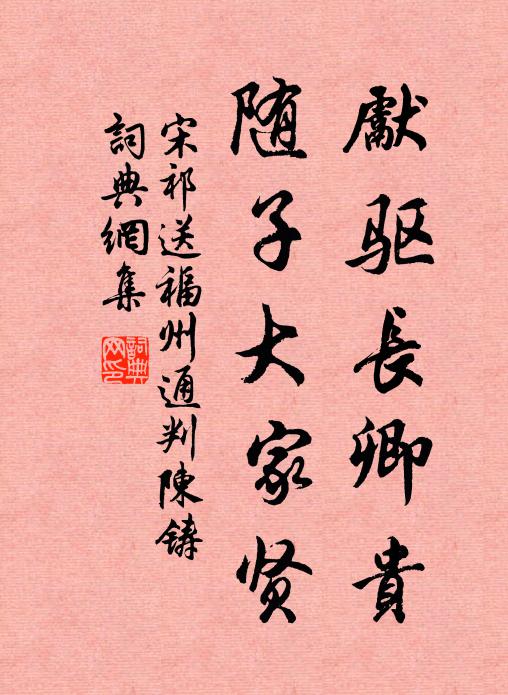 獻驱長卿貴
随子大家贤
宋祁送福州通判陳鑄
詞典網集
詞典網印